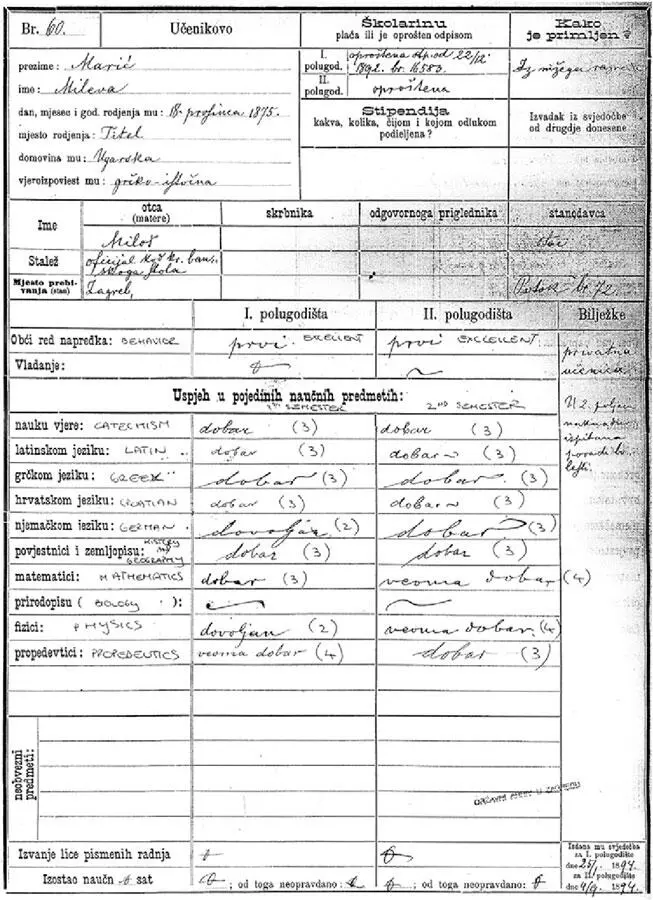 Br. 60.
Učenikovo
Školarinu
plaća ili je oprošten odpisom
Kako
je primljen?
prezime: Marić
ime: Mileva
dan, mjesec i god. rodjenja mu: 18 prosinca 1875.
mjesto rodjenja: Titel
domovina mu: Ugarska
vjeroizpoviest mu: grčko-istočna
I. polugod.
oproštena otp. od 22/12
1892. br. 16583.
II. polugod.
oproštena
Iz nižega
Stipendija
kakva, kolika, čijom i kojom odlukom
podieljena?
Izvadak iz svjedočbe
od drugdje donesene
Ime
otca
(matere)
skrbnika
odgovornoga priglednika
stanodavca
Miloš
otac
Stalež
oficijal kod kr. ban.
skoga stola
Mjesto prebi-
vanja (stan)
Zagreb,
br. 72.
I. polugodišta
II. polugodišta
Bilježke
Obći red napredka: BEHAVIOR
prvi EXCELLENT
prvi EXCELLENT
Vladanje:
privatna
učenica.
Uspjeh u pojedinih naučnih predmetih:
1ST SEMESTER
2ND SEMESTER
U 2. poljeću
ispitana
nauku vjere: CATECHISM dobar (3) dobar (3)
latinskom jeziku: LATIN dobar (3) dobar (3)
grčkom jeziku: GREEK dobar (3) dobar (3)
hrvatskom jeziku: CROATIAN dobar (3) dobar (3)
njemačkom jeziku: GERMAN dovoljan (2) dobar (3)
povjestnici i zemljopisu: HISTORY AND GEOGRAPHY dobar (3) dobar (3)
matematici: MATHEMATICS dobar (3) veoma dobar (4)
prirodopisu (BIOLOGY):
fizici: PHYSICS dovoljan (2) veoma dobar (4)
propedevtici: PROPEDEUTICS veoma dobar (4) dobar (3)
neobvezni
predmeti:
Izvanje lice pismenih radnja
Izostao naučn sat
; od toga neopravdano:
; od toga neopravdano:
Izdana mu svjedočba
za I. polugodište
dne 25/1. 1894.
za II. polugodište
dne 4/9. 1894.